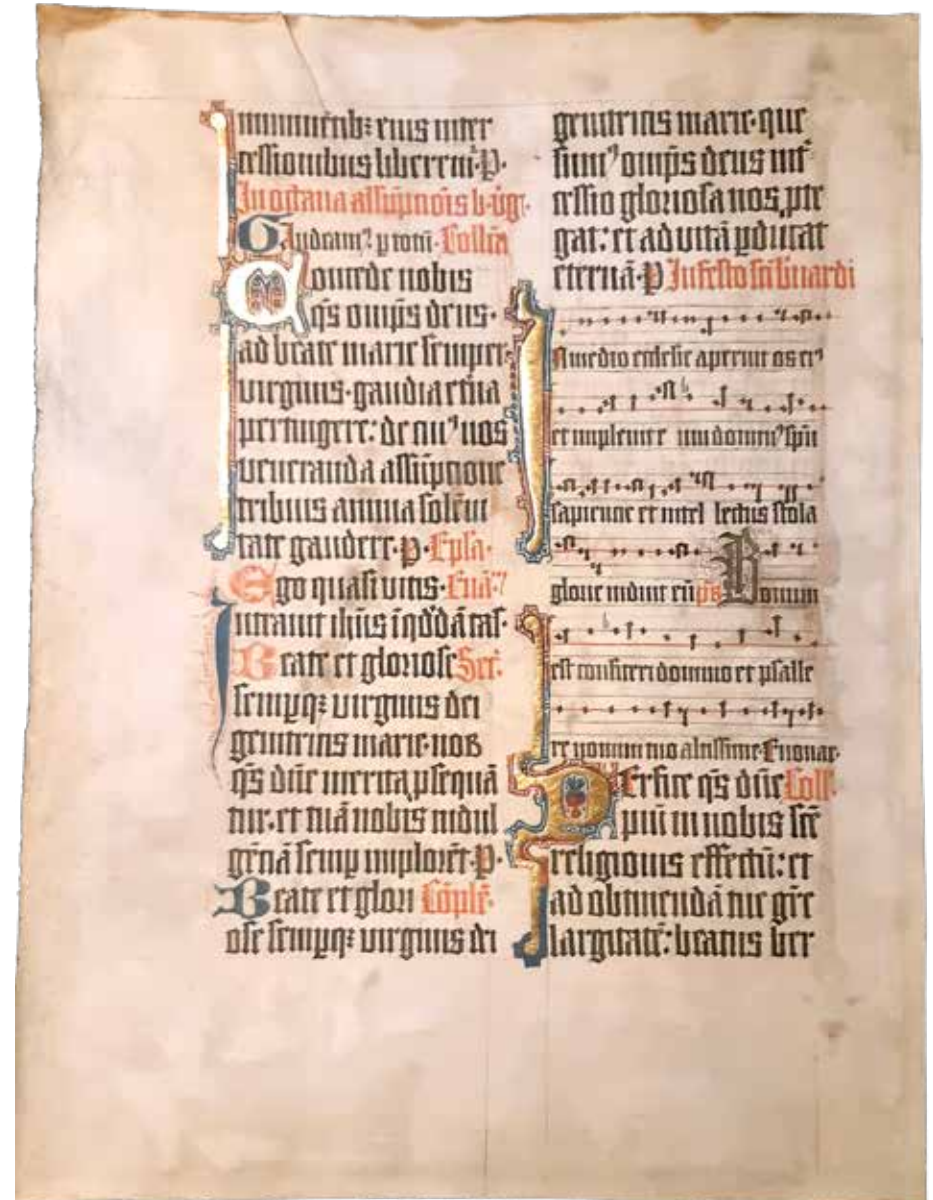 imminentib; eius inter
cessionibus liberemᷣ. P.
In octava assūpnoīs b. v̄gͥ.
Gaudeamꝰ ꝑ totū. Collcā
Concede nobis
qs̄ omīps deus.
ad beate marie semper
virginis. gaudia et̄na
pertingere: de cuiꝰ nos
veneranda assūptione
tribuis annua solēni
tate gaudere. p. Epla.
Ego quasi vitis. Euā.
Intravit ihūs ī qd̄dā cas.
Beate et gloriose Secͬ.
semꝑq; virginis dei
genitricis marie. nos
qs̄ dn̄e merita ꝓsequā
tur. et tuā nobis indul
gēciā semꝑ implorēt. P.
Beate et glori Cōplē.
ose semꝑq; virginis dei
genitricis marie. que
sumꝰ omīps deus int̄
cessio gloriosa nos ꝓte
gat: et ad vitā ꝑducat
eternā. P In festo sc̄i b̄nardi
In medio ecclesie aperuit os eiꝰ
et implevit eum dominꝰ spū
sapiencie et intel lectus stola
glorie induit eū p̄s Bonum
est confiteri domino et psalle
re nomini tuo altissime. Euouae.
Perfice qs̄ dn̄e Coll.
piū in nobis sc̄e
religionis effectū: et
ad obtinendā tue gr̄e
largitatē: beatus ber